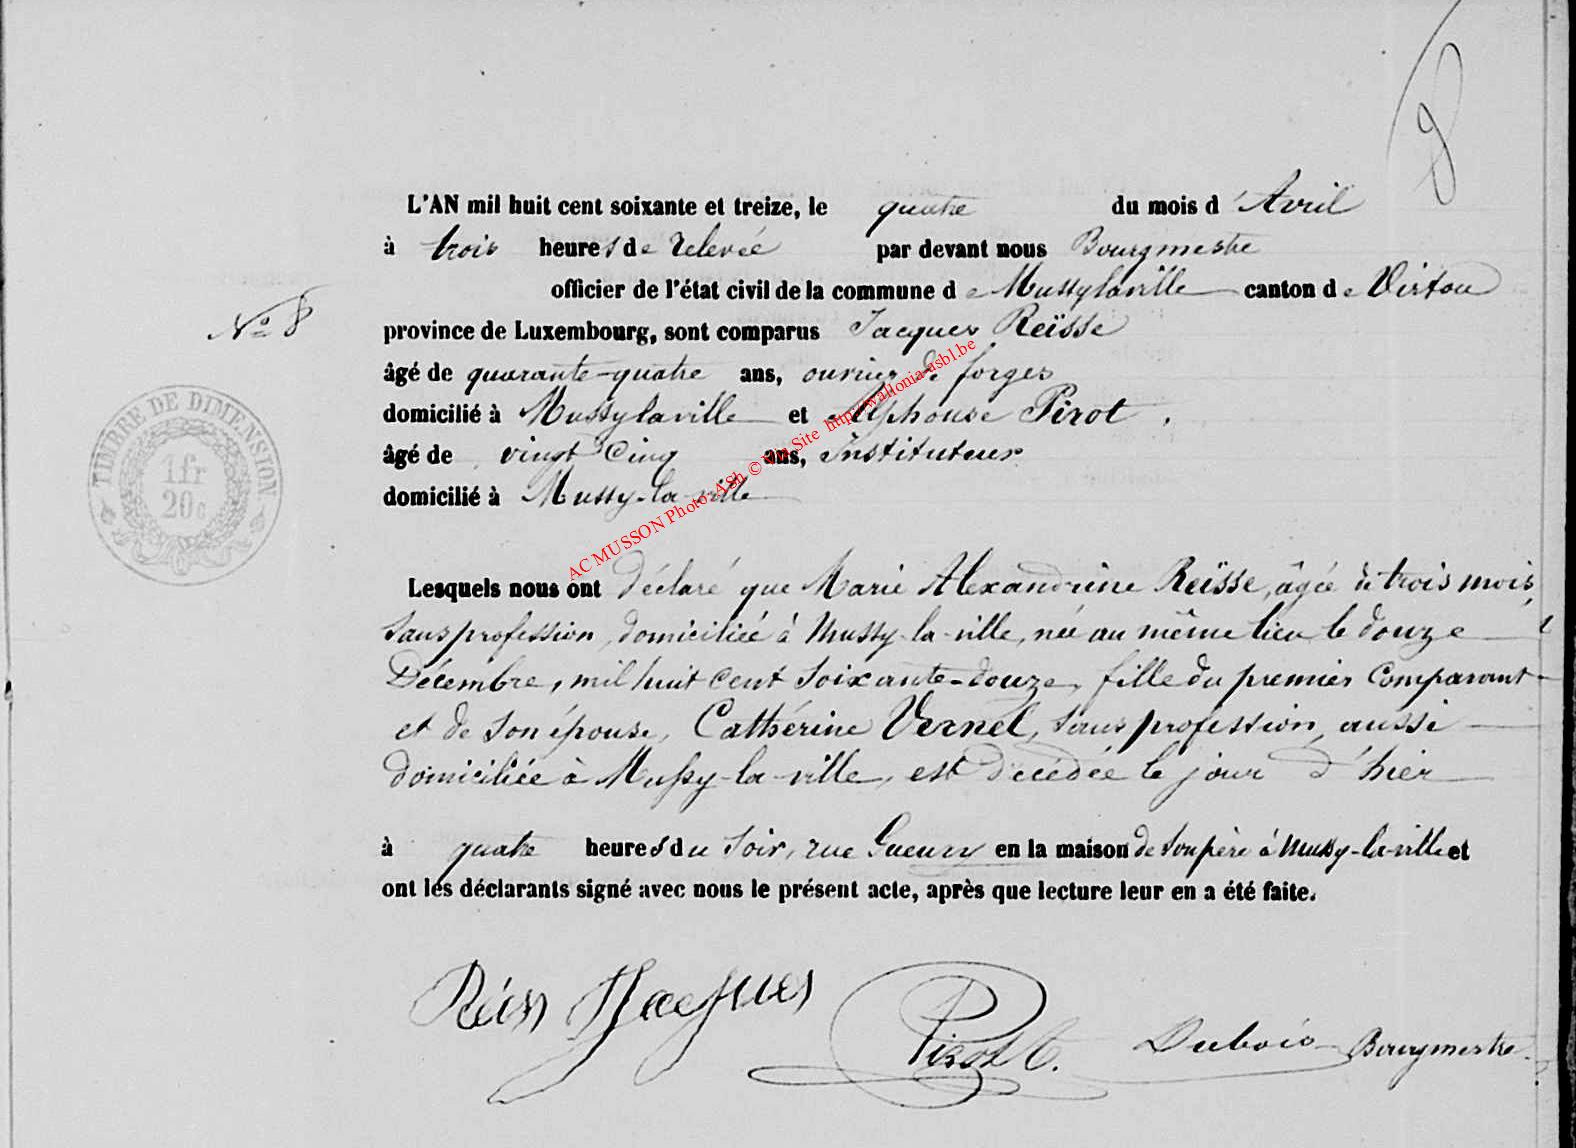 8
L'AN mil huit cent soixante et treize, le quatre du mois d'Avril
à trois heures de relevée par devant nous Bourgmestre
officier de l'état civil de la commune de Mussylaville canton de Virton
N° 8
province de Luxembourg, sont comparus Jacques Reïsse
âgé de quarante-quatre ans, ouvrier de forges
domicilié à Mussylaville et Alphonse Pirot,
âgé de vingt cinq ans, Instituteur
domicilié à Mussy-la-ville
TIMBRE DE DIMENSION
1fr
20c
AC MUSSON Photo: ASh © Site http://wallonia-asbl.be
Lesquels nous ont déclaré que Marie Alexandrine Reïsse, âgée de trois mois,
sans profession, domiciliée à Mussy-la-ville, née au même lieu le douze
Décembre, mil huit cent soixante-douze, fille du premier Comparant
et de son épouse, Cathérine Vernel, sans profession, aussi
domiciliée à Mussy-la-ville, est décédée le jour d'hier
à quatre heures du soir, rue en la maison de son père à Mussy-la-ville et
ont les déclarants signé avec nous le présent acte, après que lecture leur en a été faite.
Réiss Jacques
Pirot Dubois Bourgmestre